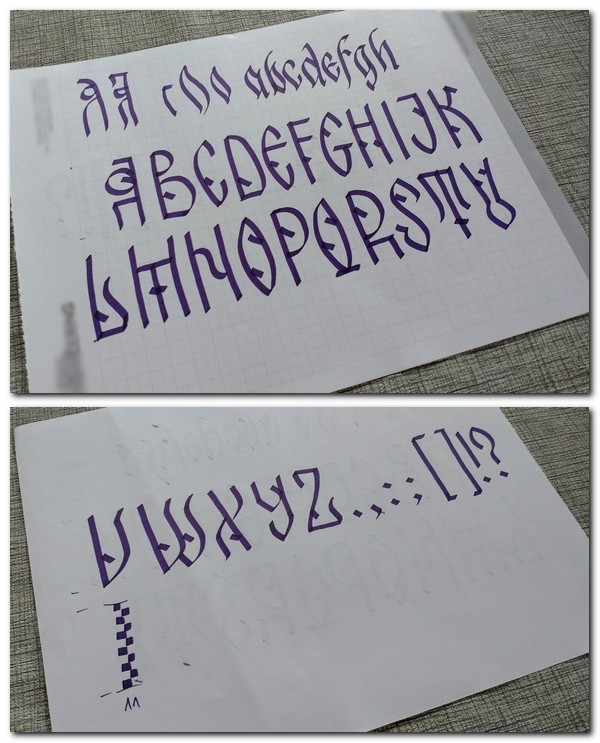 AA rOo abcdefgh
ABCDEFGHIJK
LMNOPQRSTU
VWXYZ.,:;[]!?